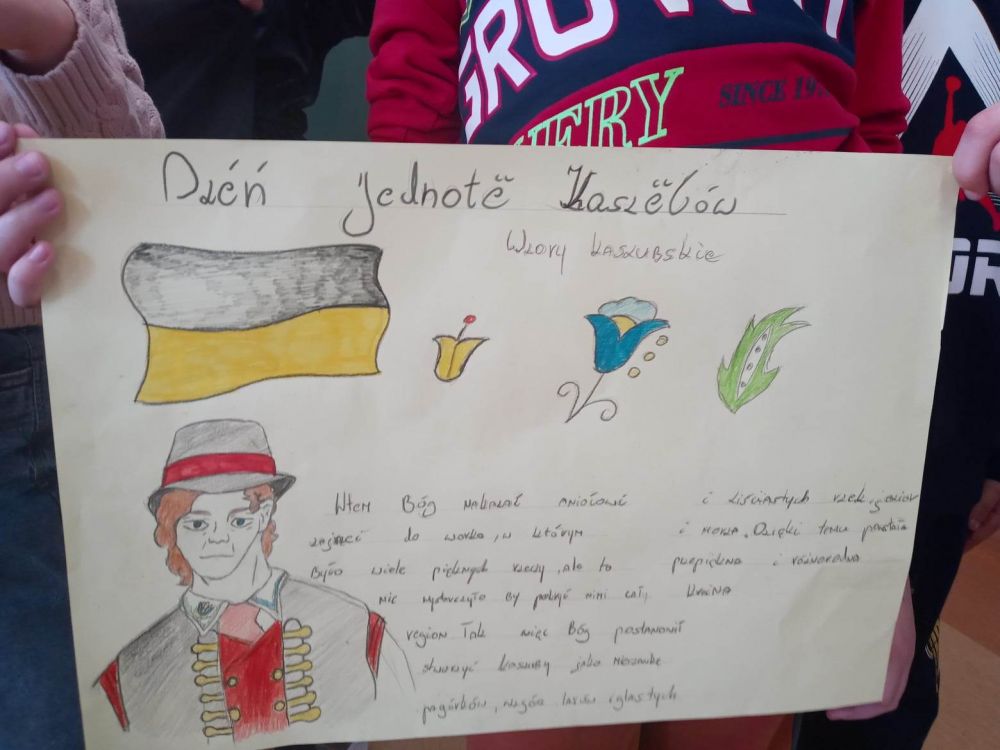 GROWN
VERY
SINCE 19
Dzéń jednotë Kaszëbów
Wzory kaszubskie
Wtem Bóg nakazał aniołowi
zajrzeć do worka, w którym
Było wiele pięknych rzeczy, ale to
nie wystarczyło by pokryć nimi cały
region Tak więc Bóg postanowił
stworzyć kaszuby jako mieszankę
pagórków, wzgórz lasów iglastych
i liściastych rzek, jezior
i morza. Dzięki temu powstała
przepiękna i różnorodna
kraina